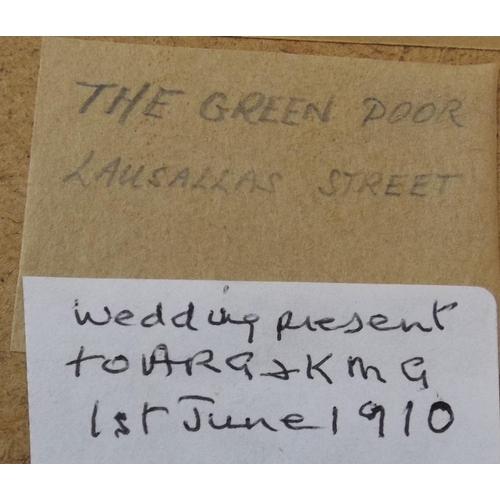 THE GREEN DOOR
LAUSALLAS STREET
wedding present
to ARG & KMG
1st June 1910